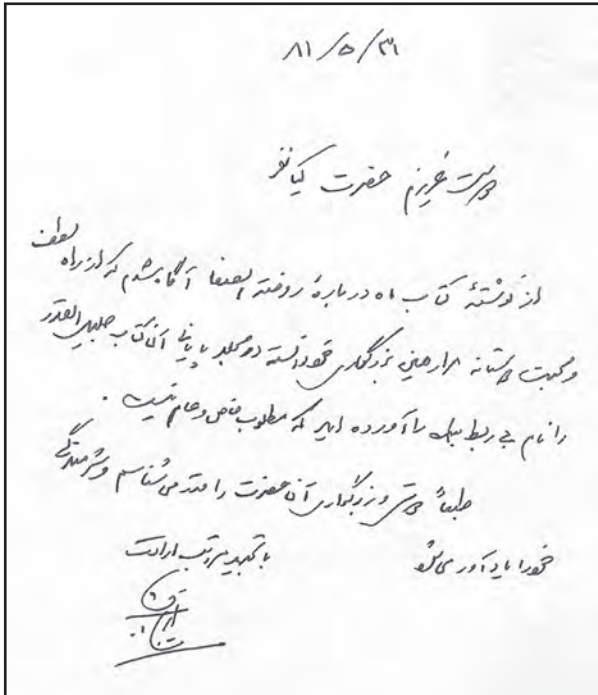 ۸۱/۵/۳۱
دوست عزیزم حضرت کیانفر
از نوشتهٔ کتاب ماه دربارهٔ روضة الصفا آگاه شدم که از راه لطف
و محبت دوستانه بزرگواری خود دو مجلد پایانی آن کتاب جلیل القدر
را نام بی ربط آورده اید که مطلوب خاص و عام نیست.
طبعاً دوستی و بزرگواری آن حضرت را قدر می شناسم و شرمندگی
خود را یادآور می شوم
با تجدید مراتب ارادت